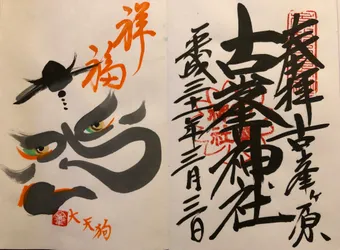 奉拝 古峯ヶ原
古峯神社
平成三十一年三月三日
祥
福
大天狗